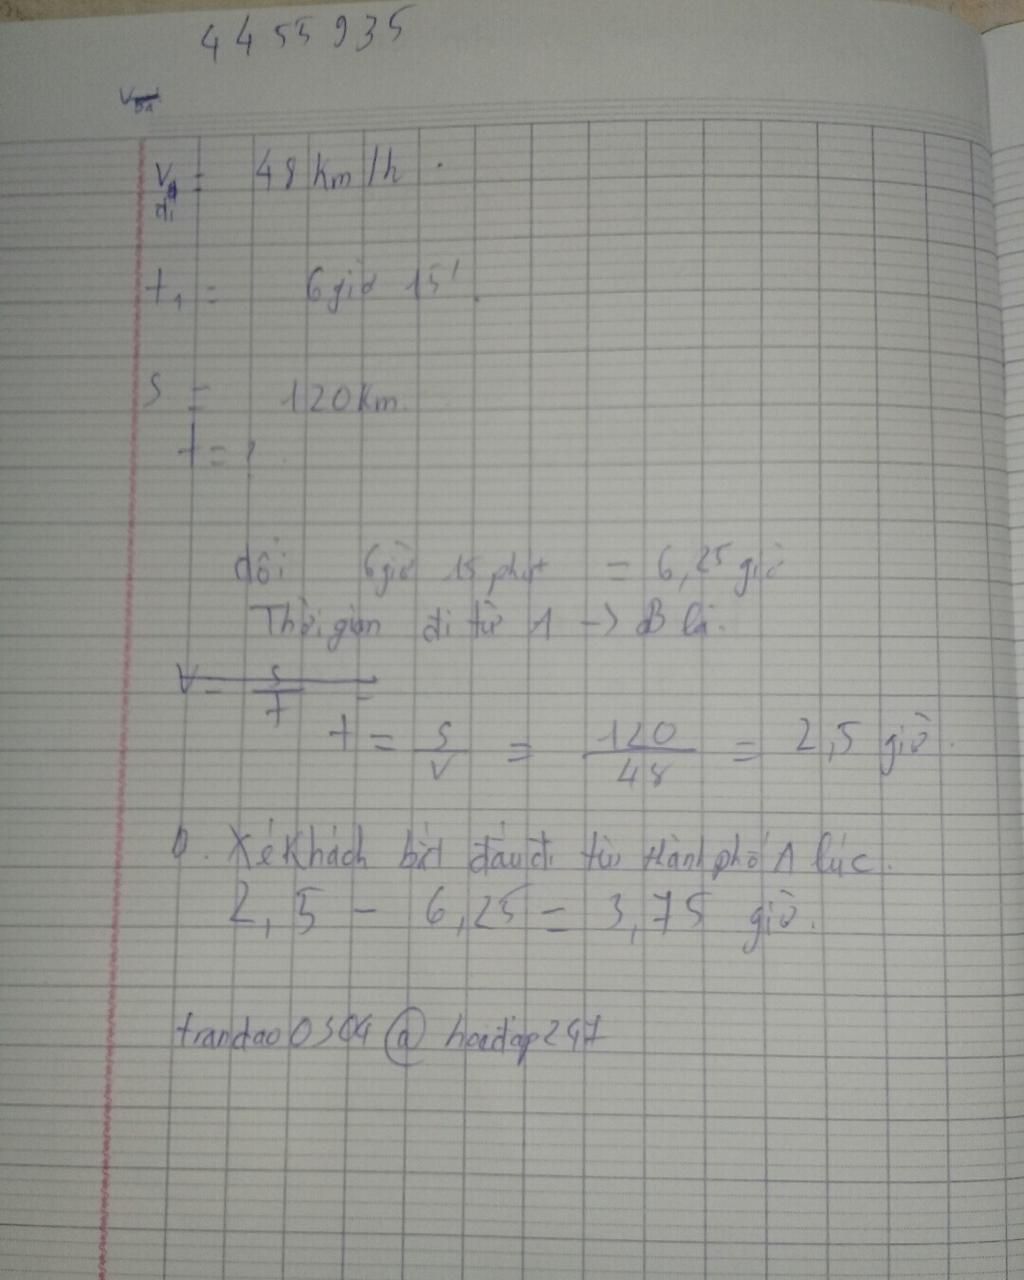 4455935
V
đi = 48 km/h.
t₁ = 6 giờ 15'.
S = 120 Km.
t = ?
đổi 6 giờ 15 phút = 6,25 giờ
Thời gian đi từ A -> B là.
V = S/t =
t = S/V = 120/48 = 2,5 giờ.
b. Xe Khách bắt đầu đi từ thành phố A lúc.
2,5 - 6,25 = 3,75 giờ.
trandao0304 @ hoidap247